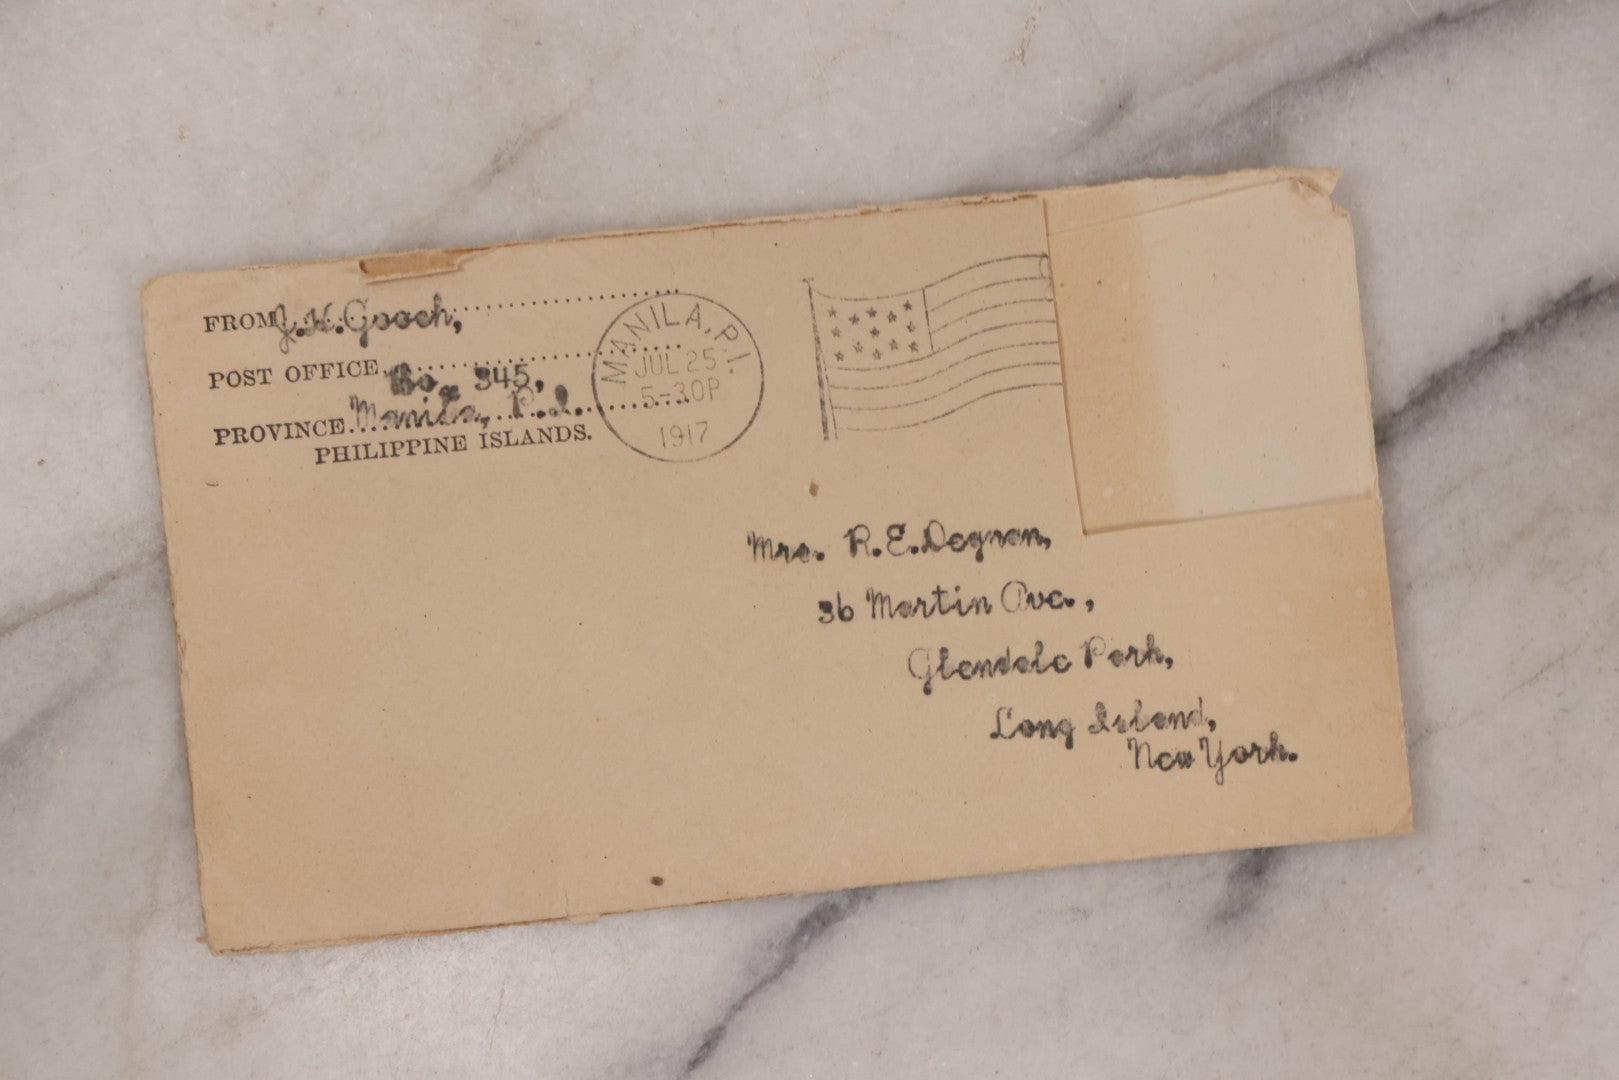 FROM J.H. Gooch,
POST OFFICE Box 345,
PROVINCE Manila, P.I.
PHILIPPINE ISLANDS.
MANILA, P.I.
JUL 25
5-30P
1917
Mrs. R.E. Degnan,
36 Martin Ave.,
Glendale Park,
Long Island,
New York.